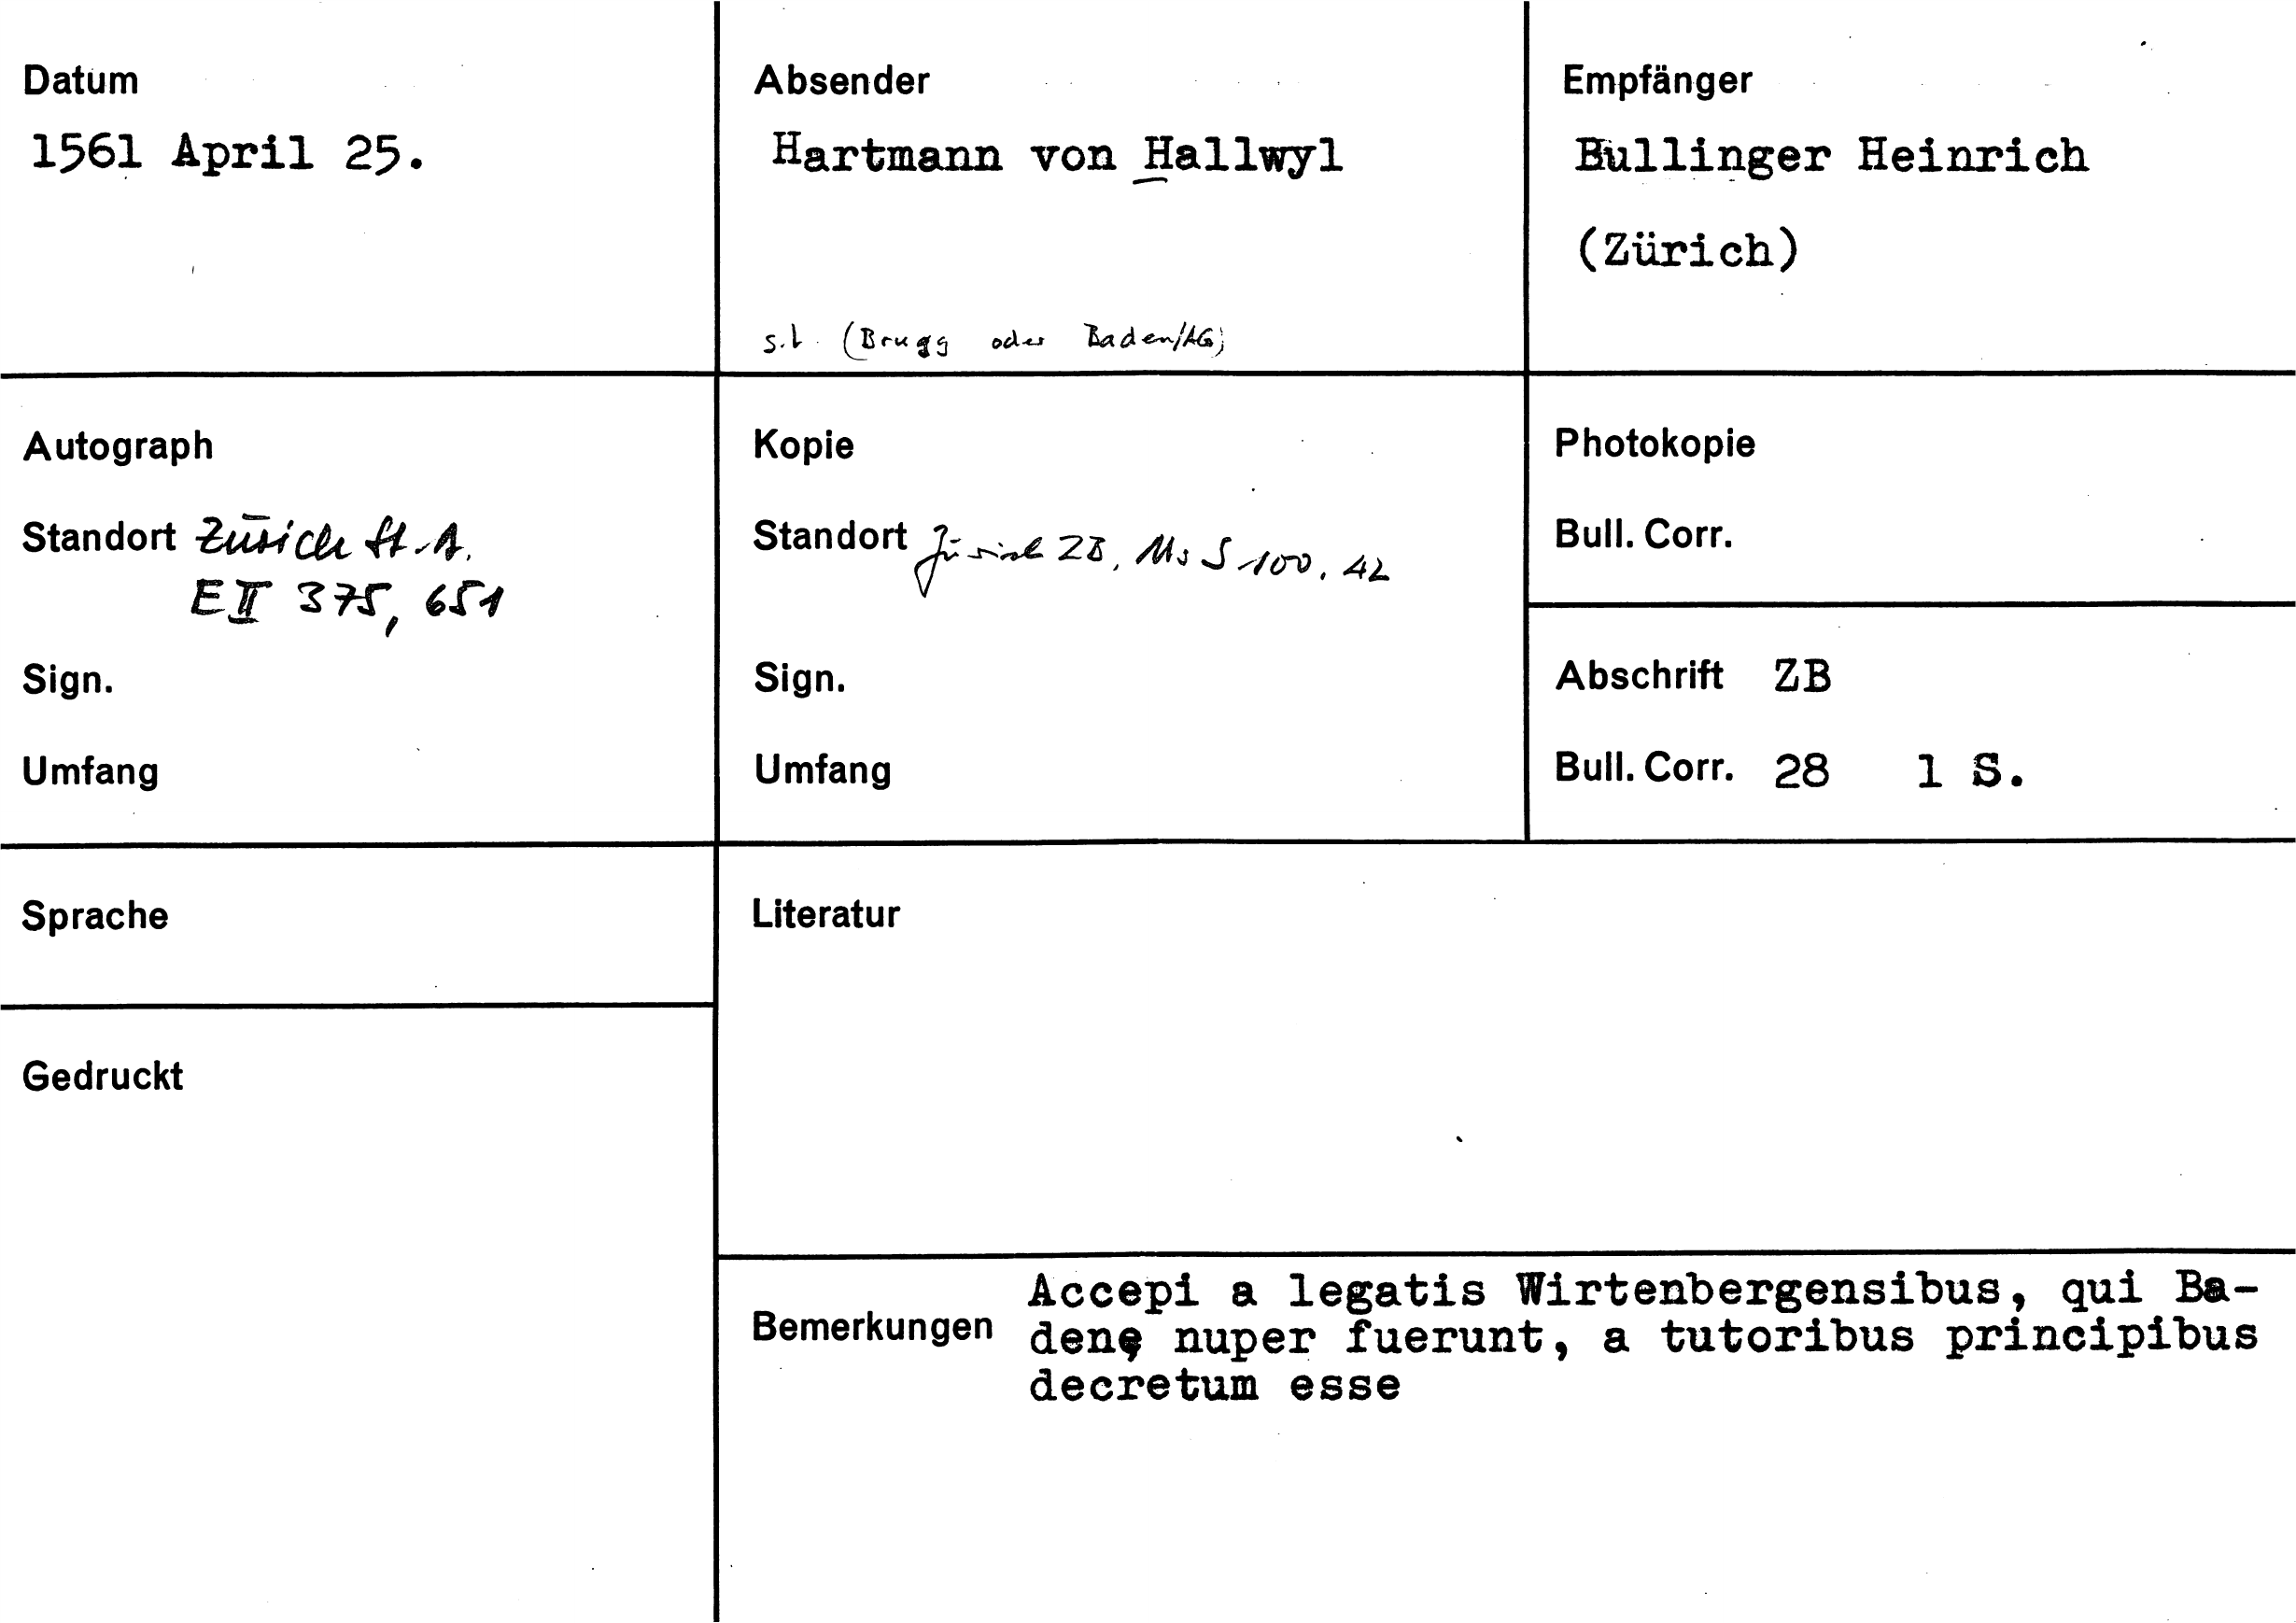 Datum
1561 April 25.
Absender
Hartmann von Hallwyl
s.l. (Brugg oder Baden/AG)
Empfänger
Bullinger Heinrich
(Zürich)
Autograph
Standort Zürich St.A.
E II 375, 651
Sign.
Umfang
Kopie
Standort Zürich ZB, Ms S 100, 42
Sign.
Umfang
Photokopie
Bull. Corr.
Abschrift ZB
Bull. Corr. 28 1 S.
Sprache
Gedruckt
Literatur
Bemerkungen
Accepi a legatis Wirtenbergensibus, qui Ba-
denę nuper fuerunt, a tutoribus principibus
decretum esse